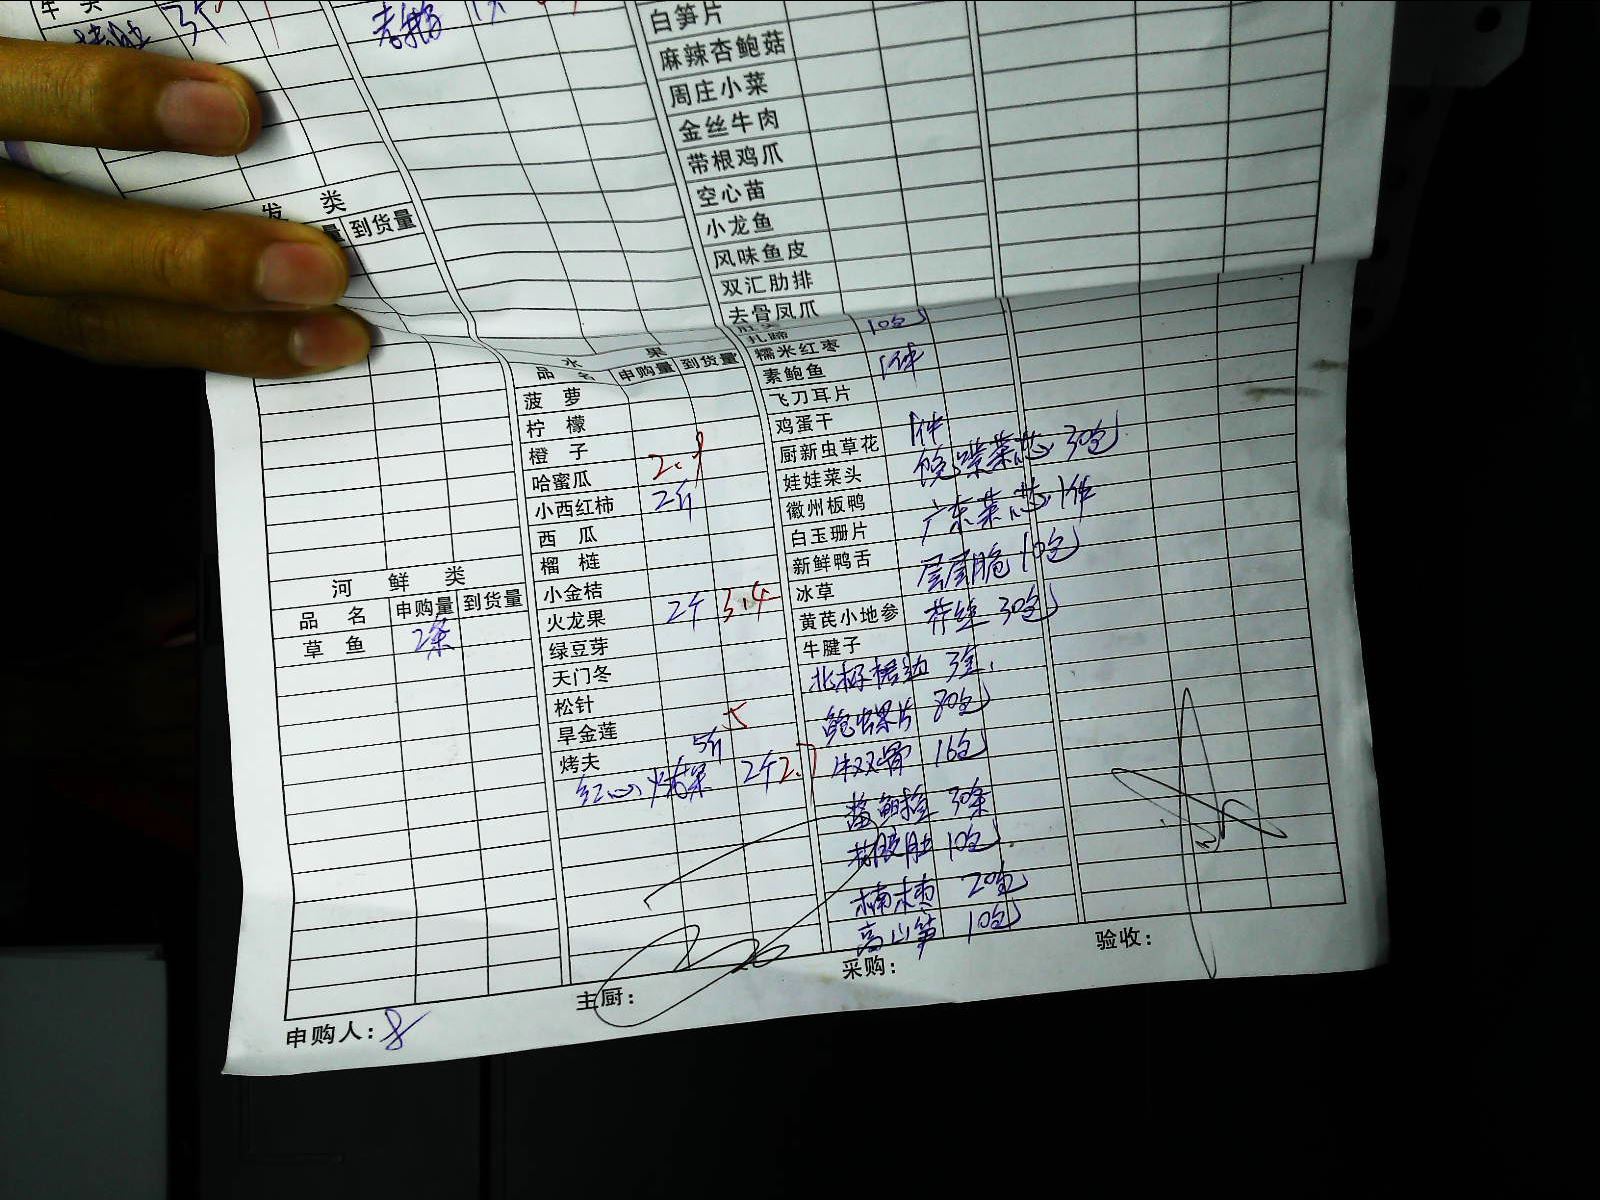 白笋片
麻辣杏鲍菇
周庄小菜
金丝牛肉
带根鸡爪
空心苗
小龙鱼
风味鱼皮
双汇肋排
去骨凤爪
类
到货量
水 果
品 名 申购量 到货量
菠 萝
柠 檬
橙 子
哈蜜瓜 2.9
小西红柿 2斤
西 瓜
榴 梿
小金桔
火龙果 2斤 3.4
绿豆芽
天门冬
松针
旱金莲
烤夫 5斤 5
红心火龙果 2斤 2.7
扎蹄 10包
糯米红枣
素鲍鱼 1件
飞刀耳片
鸡蛋干
厨新虫草花 1件
娃娃菜头 菜芯 30包
徽州板鸭
白玉珊片 广东菜芯 1件
新鲜鸭舌
冰草 层层脆 10包
黄芪小地参 30包
牛腱子
北极
鲍螺片
16包
30条
10包
楠枣 20包
高山笋 10包
河 鲜 类
品 名 申购量 到货量
草 鱼 2条
申购人：
主厨：
采购：
验收：